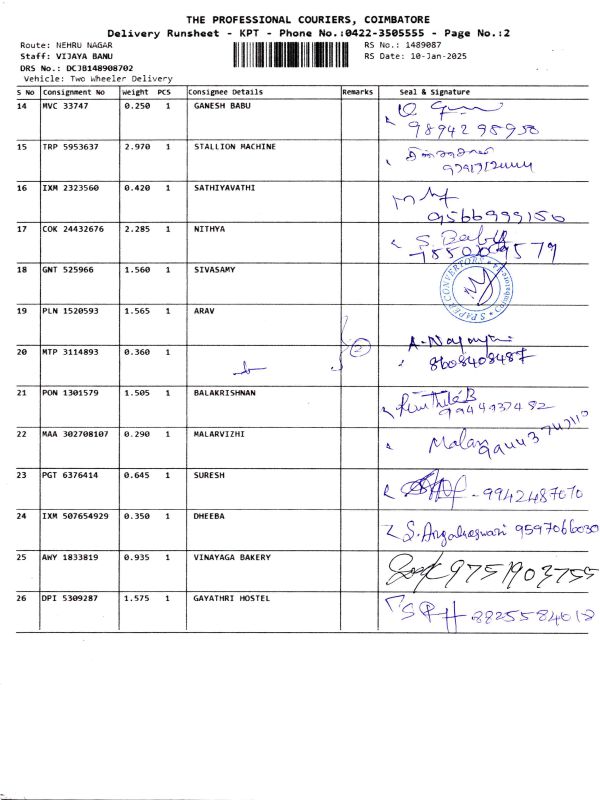 THE PROFESSIONAL COURIERS, COIMBATORE
Delivery Runsheet - KPT - Phone No.:0422-3505555 - Page No.:2
Route: NEHRU NAGAR RS No.: 1489087
Staff: VIJAYA BANU RS Date: 10-Jan-2025
DRS No.: DCJB148908702
Vehicle: Two Wheeler Delivery
S No Consignment No Weight PCS Consignee Details Remarks Seal & Signature
14 MVC 33747 0.250 1 GANESH BABU
15 TRP 5953637 2.970 1 STALLION MACHINE
16 IXM 2323560 0.420 1 SATHIYAVATHI
9566999150
17 COK 24432676 2.285 1 NITHYA S. Baby
18 GNT 525966 1.560 1 SIVASAMY
S PAPER CONVERTORS
19 PLN 1520593 1.565 1 ARAV
20 MTP 3114893 0.360 1 2
8608408487
21 PON 1301579 1.505 1 BALAKRISHNAN
9944937482
22 MAA 302708107 0.290 1 MALARVIZHI Malar
23 PGT 6376414 0.645 1 SURESH - 9942487070
24 IXM 507654929 0.350 1 DHEEBA 9597066030
25 AWY 1833819 0.935 1 VINAYAGA BAKERY 9751903755
26 DPI 5309287 1.575 1 GAYATHRI HOSTEL 8825584018